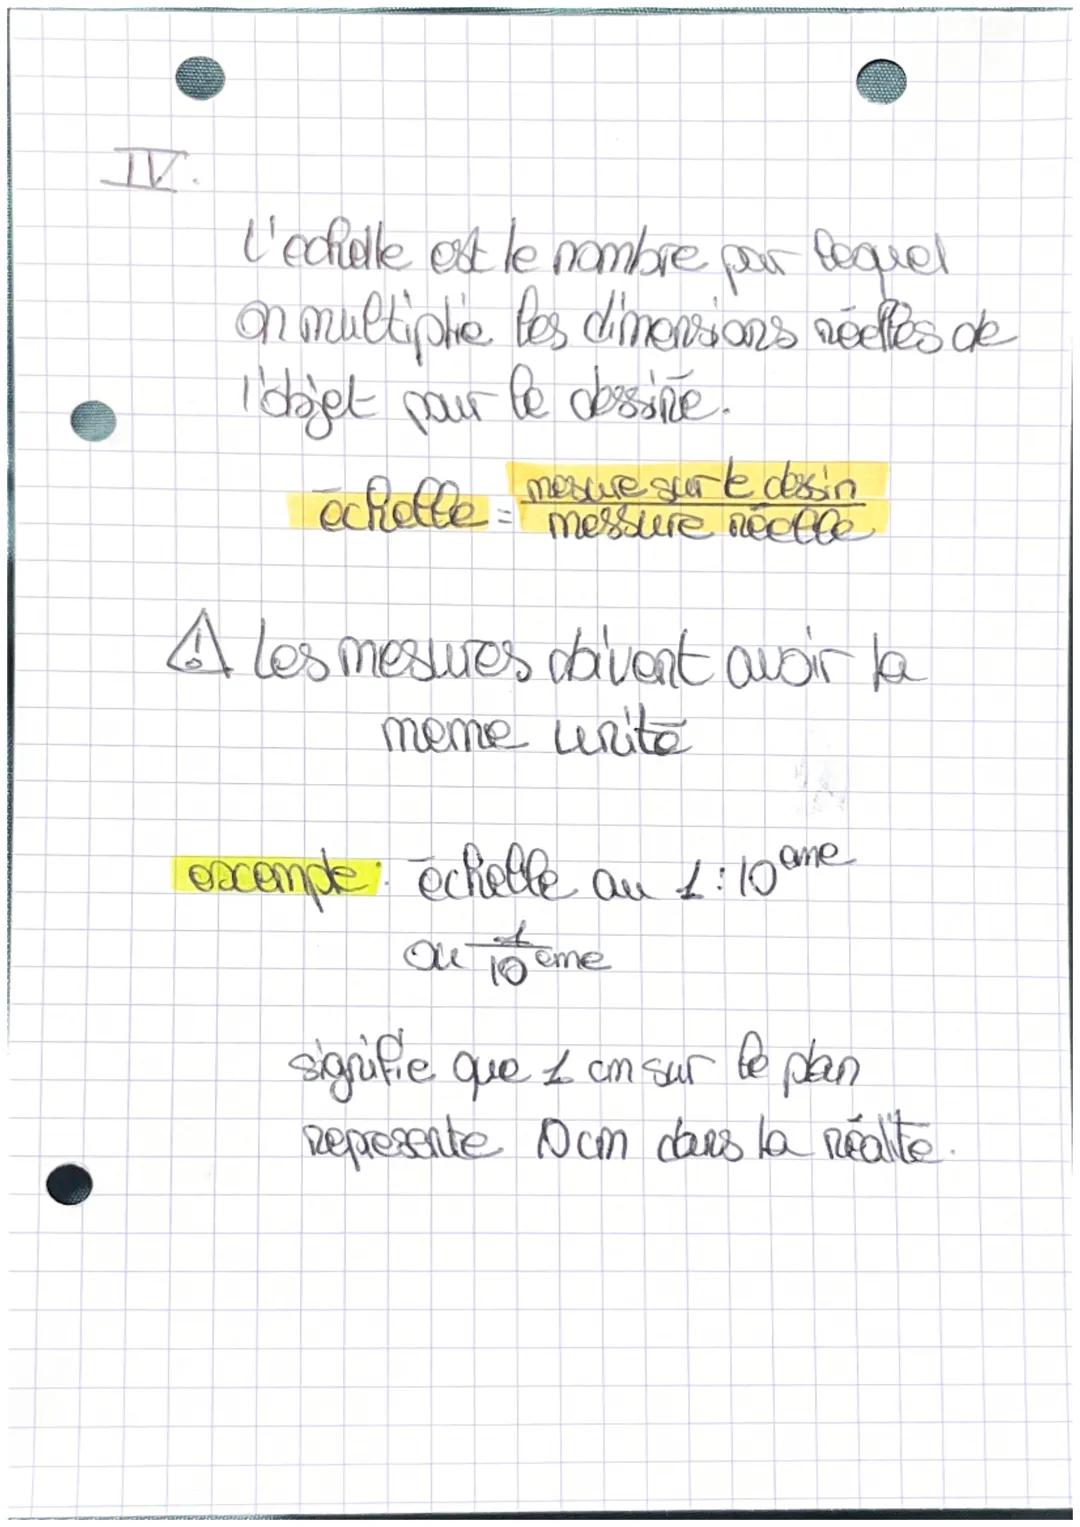 IV.
L'echelle est le nombre par lequel
on multiplie les dimensions réelles de
l'objet pour le dessiné.
échelle = mesure sur le dessin
messure réelle
⚠ Les mesures doivent avoir la
meme unité
excemple : échelle au 1:10 eme
ou 1/10 eme
signifie que 1 cm sur le plan
represente 10cm dans la réalité.